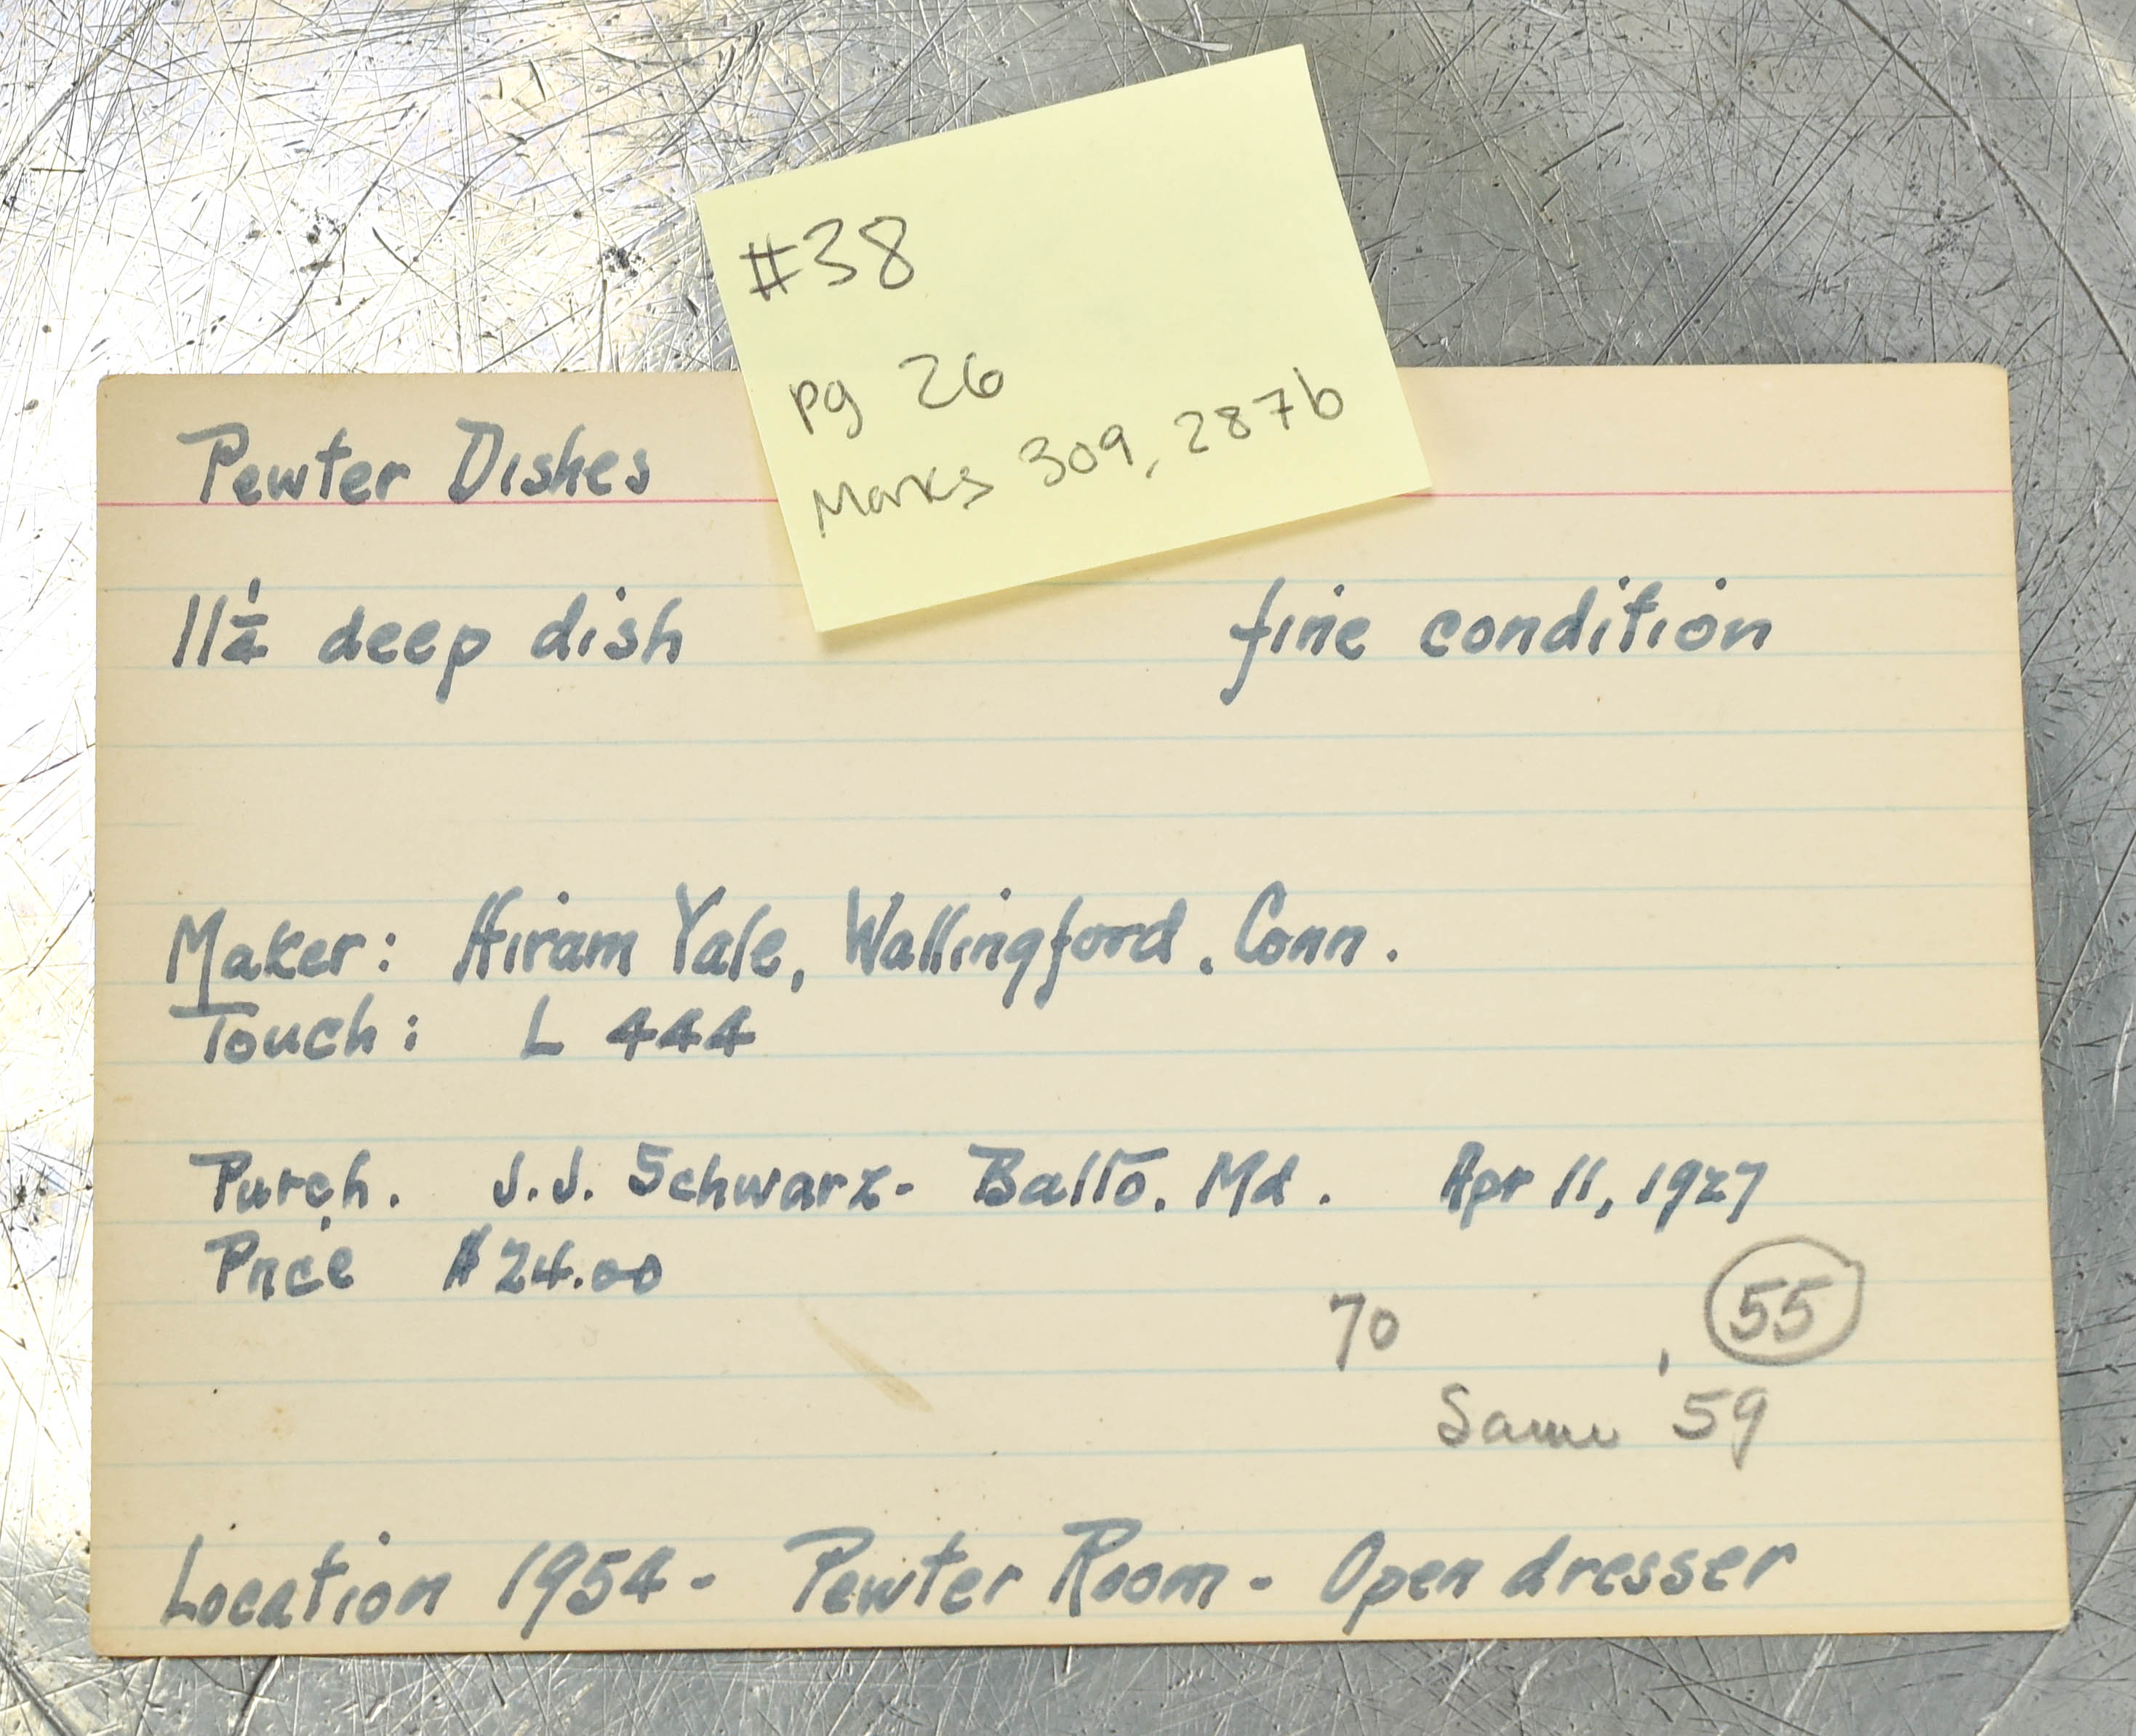 #38
pg 26
Marks 309, 287b
Pewter Dishes
11½ deep dish fine condition
Maker: Hiram Yale, Wallingford. Conn.
Touch: L 444
Purch. J.J. Schwarz- Balto. Md. Apr 11, 1927
Price $24.00
70 55
Same 59
Location 1954- Pewter Room- Open dresser